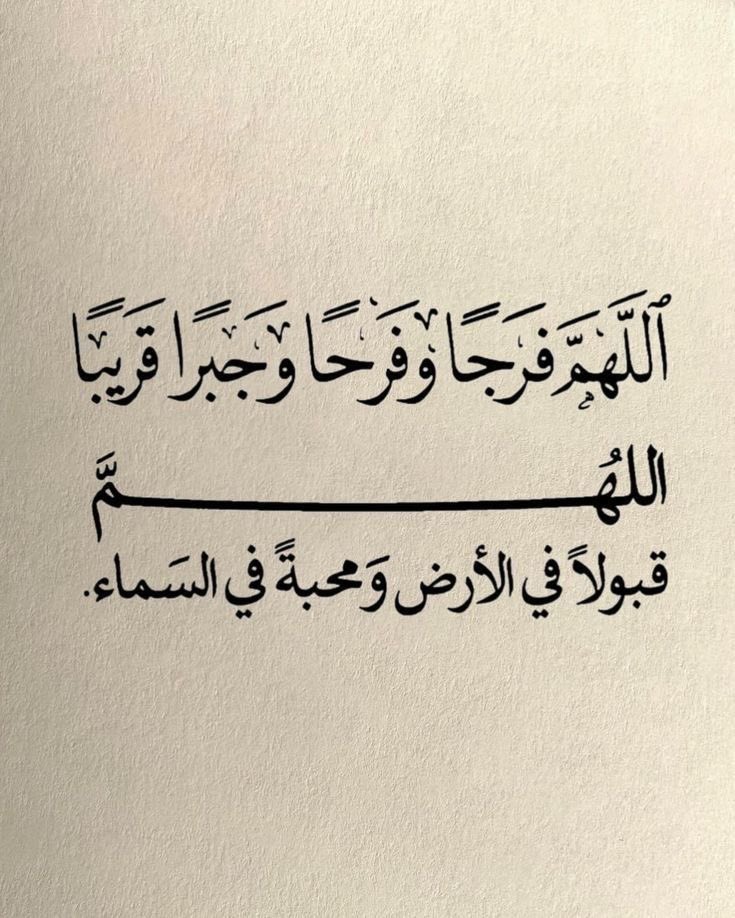 ٱللَّهُمَّ فَرَجًا وَفَرَحًا وَجَبرًا قَرِيبًا
اللهُمَّ
قبولاً في الأرض وَمحبةً في السَماء.